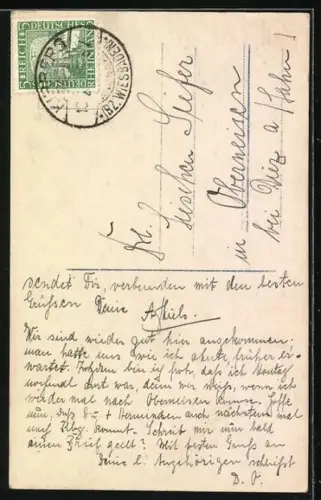 DEUTSCHES REICH
5
KIRBERG
(BZ. WIESBADEN)
Frl.
Lieschen Seifer
in Oberneisen
bei Diez a/Lahn
sendet Dir, verbunden mit den besten
Grüßen Deine A.
Wir sind wieder gut hier angekommen.
man hatte uns wie ich ahnte, früher er-
wartet. Trotzdem bin ich froh, daß ich Montag
nochmal dort war, denn wer weiß, wenn ich
wieder mal nach Oberneisen komme. Hoffe
nun, daß Du + Herminchen auch nächstens mal
nach Kbg. kommt. Schreib mir nun bald
einen Brief gell? Mit besten Gruß an
Deine l. Angehörigen schließt
D. O.